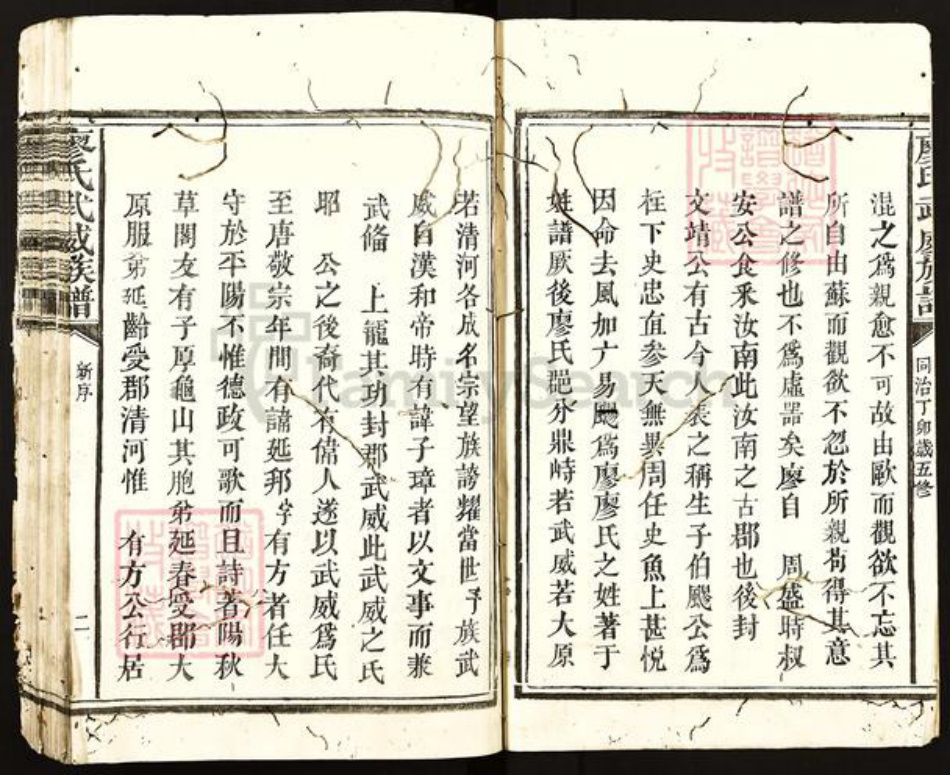 廖氏武威族譜
同治丁卯歲五修
混之爲親愈不可故由歐而觀欲不忘其
所自由蘇而觀欲不忍於所親苟得其意
譜之修也不爲虛器矣廖自 周盛時叔
安公食釆汝南此汝南之古郡也後封
文靖公有古今人表之稱生子伯颺公爲
柱下史忠直參天無異周任史魚上甚悦
因命去風加广易颺爲廖廖氏之姓著于
姓譜厥後廖氏㔽分鼎峙若武威若大原
若清河各成名宗望族誇耀當世予族武
威自漢和帝時有諱子璋者以文事而兼
武俻 上寵其功封郡武威此武威之氏
耶 公之後裔代有偉人遂以武威爲氏
至唐敬宗年間有諱延邦字有方者任大
守於平陽不惟德政可歌而且詩著陽秋
草閣友有子厚龜山其胞弟延春受郡大
原服弟延齡受郡清河惟 有方公行居
廖氏武威族譜
新序
二
FamilySearch